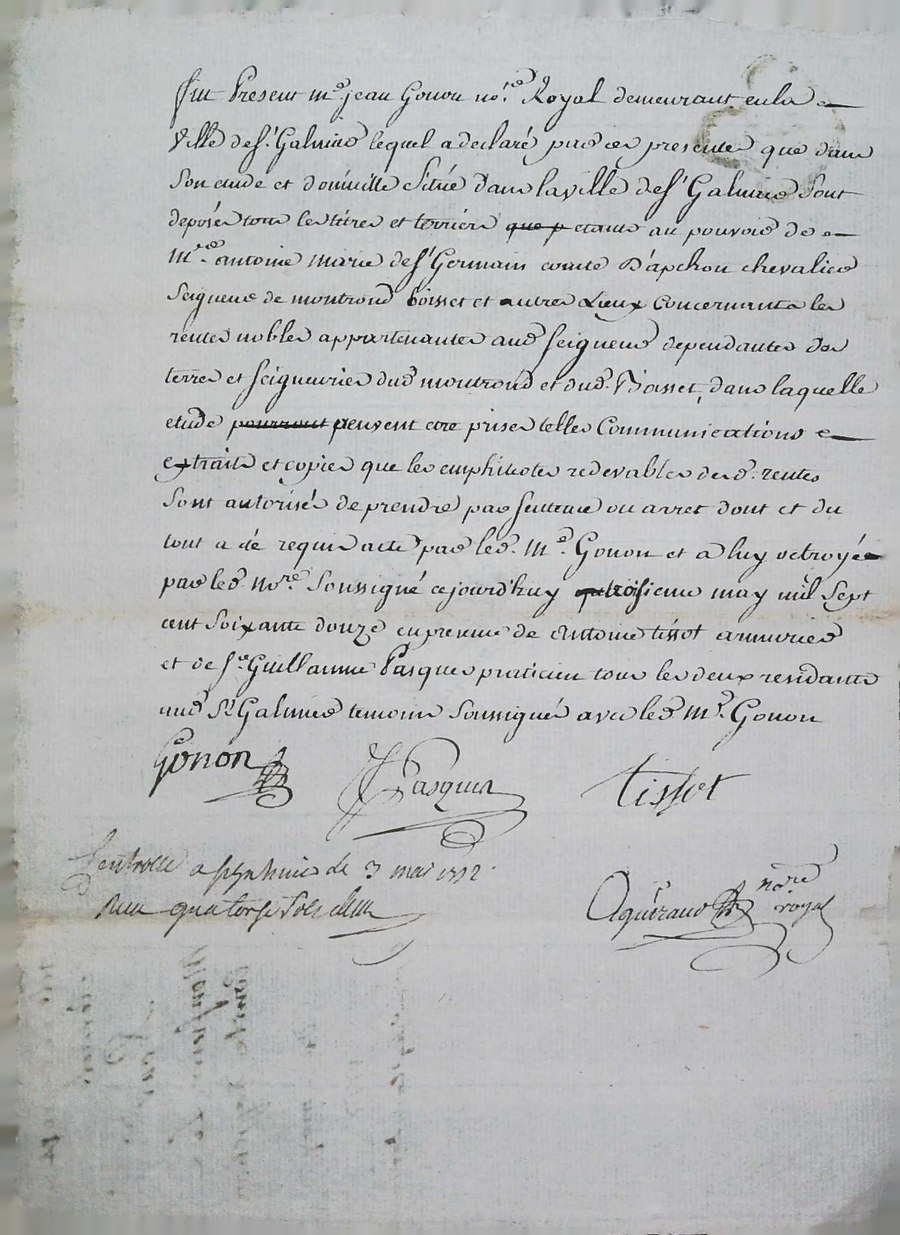 fut Present me jean Gonon nore Royal demeurant en la
ville de st Galmier lequel a declaré par ces presentes que dans
son etude et domicille situé dans la ville de st Galmier sont
deposés tous les titres et terriers que p etants au pouvoir de
mre antoine marie de st Germain comte D'apchon chevalier
seigneur de montrond boisset et autres Lieux concernants les
rentes nobles appartenantes aud seigneur dependantes des
terres et seigneuries dud montrond et dud. Boisset, dans laquelle
etude pourront peuvent etre prises telles Communications
extraits et copies que les emphiteotes redevables desd. rentes
sont autorisés de prendre par sentence ou arret dont et du
tout a été requis acte par led. Me. Gonon et a luy octroyée
par led nore soussigné cejourd'huy troisieme may mil sept
cent soixante douze en presence de antoine tissot armurier
et de sr Guillaume Pasquier praticien tous les deux residants
aud St Galmier temoins soussignés avec led Me. Gonon
Gonon Pasquier tissot
Controllé a st galmier le 3 mai 1772
Reçu quatorze sols
nore
royal